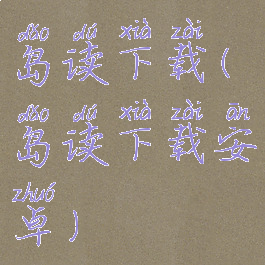 dǎo dú xià zǎi
岛读下载(
dǎo dú xià zǎi ān
岛读下载安
zhuó
卓)